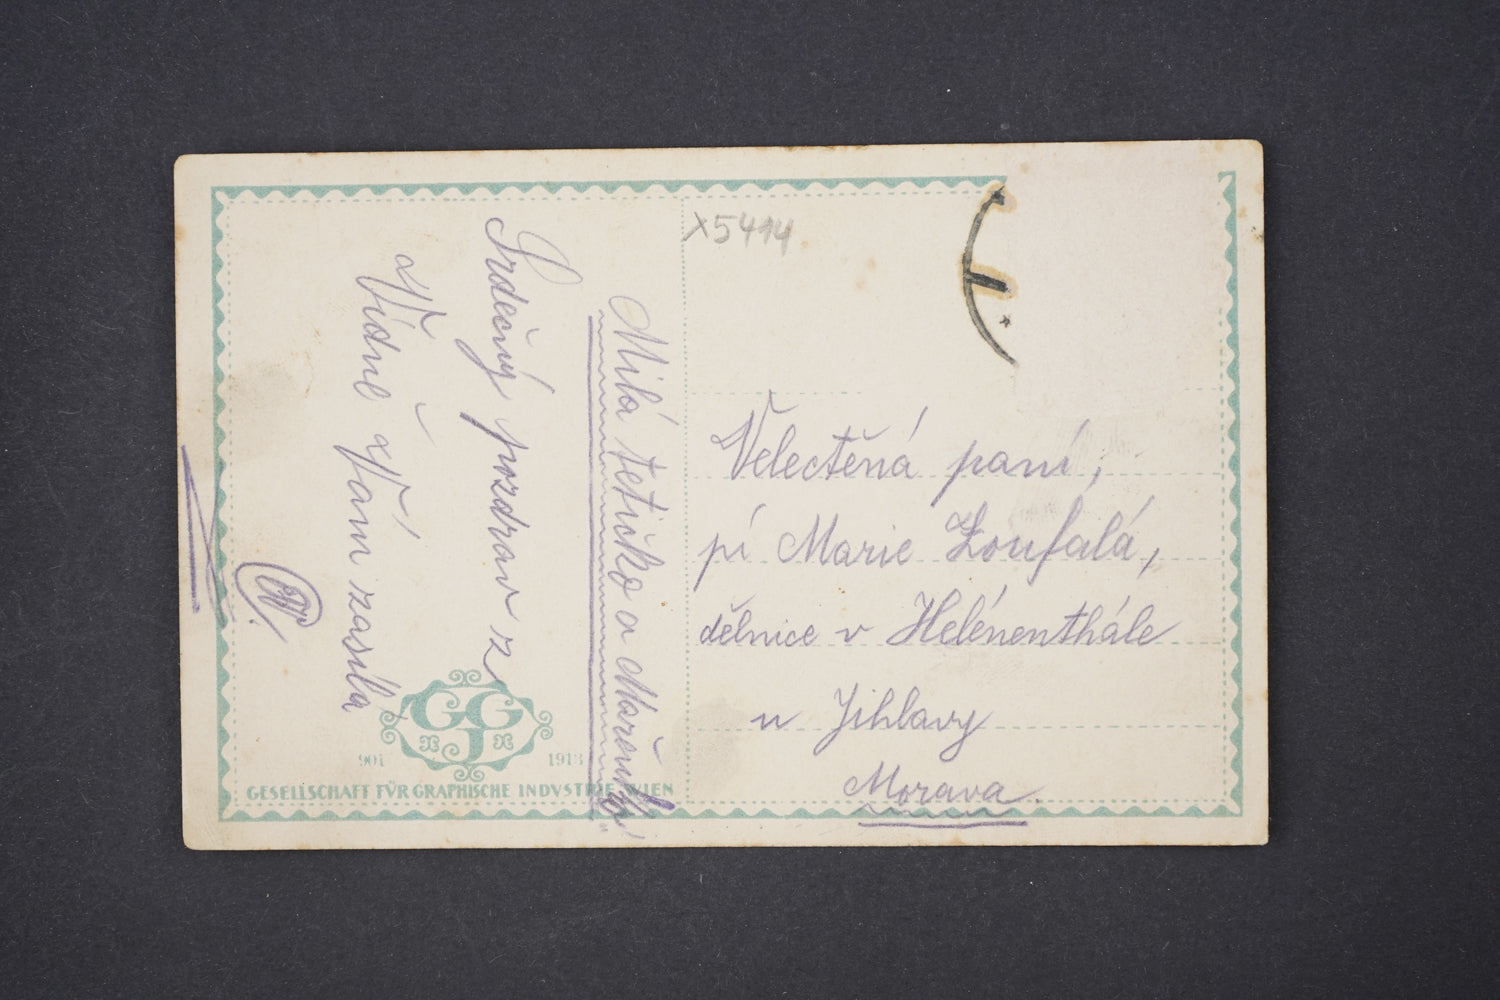 X5414
Milá tetičko a Mařenko!
Srdečný pozdrav z
Vídně Vám zasílá
Velectěná paní,
pí Marie Zoufalá,
dělnice v Helénenthále
u Jihlavy
Morava.
GGJ
901 1913
GESELLSCHAFT FÜR GRAPHISCHE INDVSTRIE WIEN